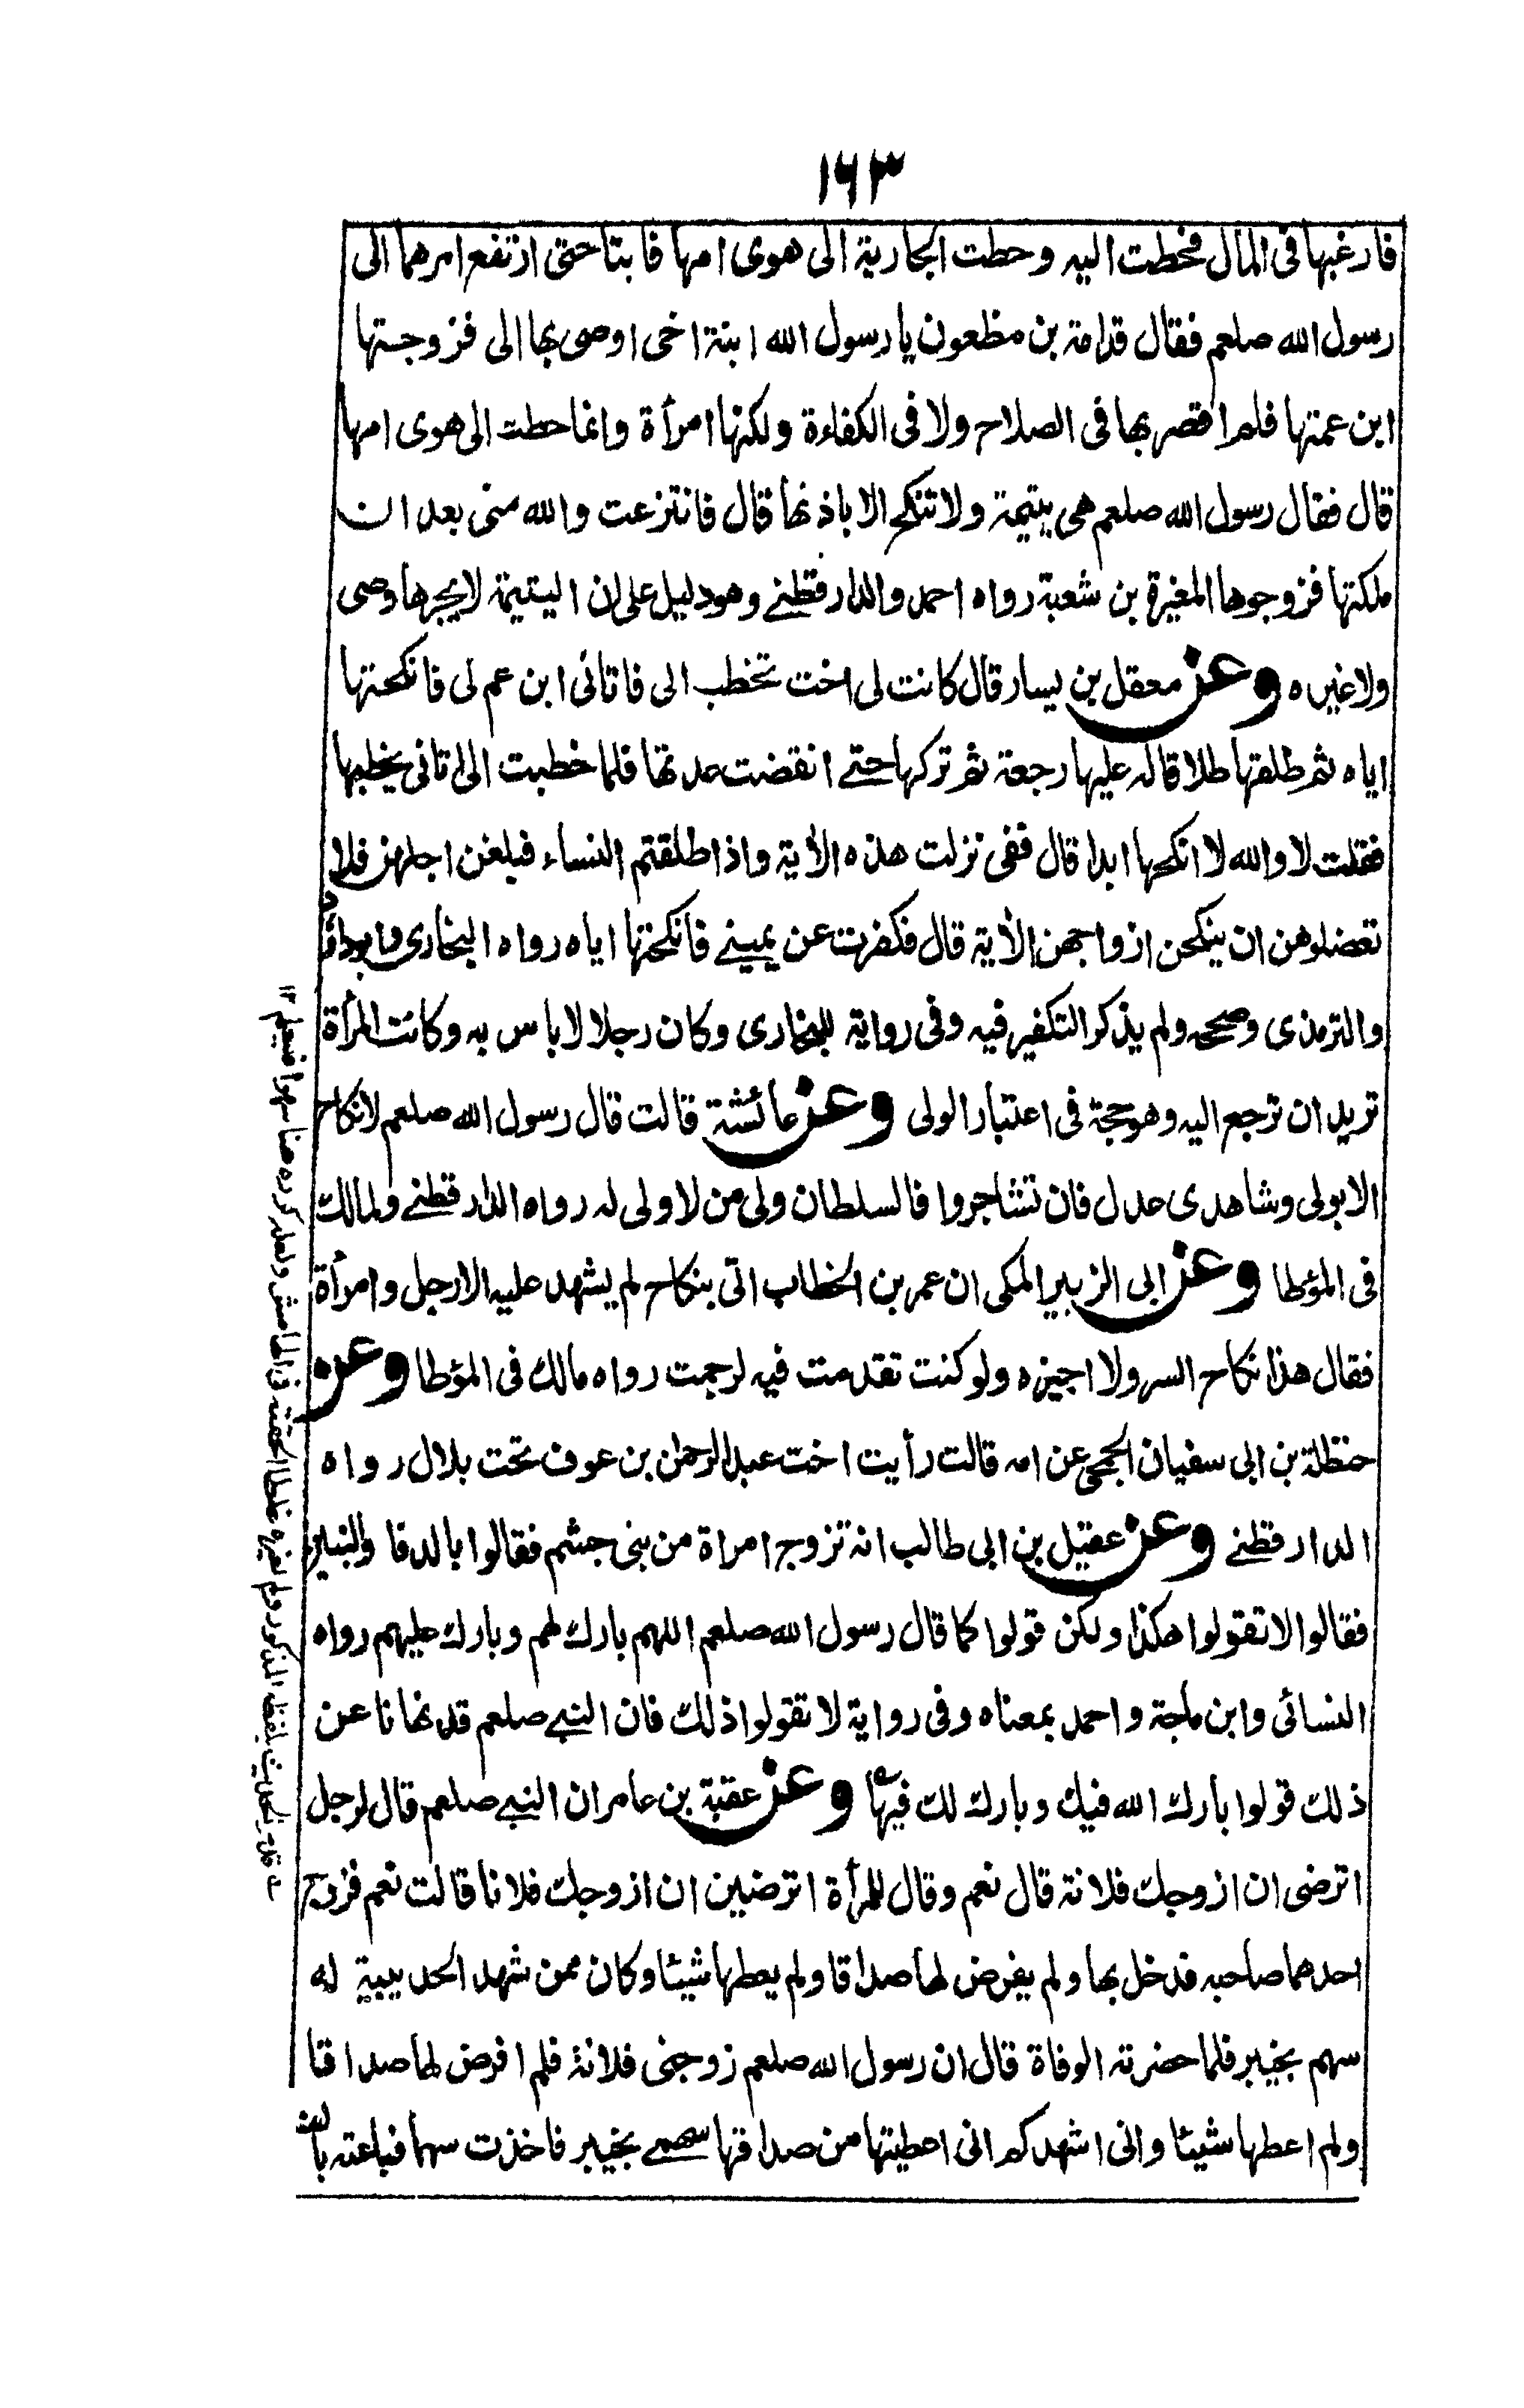 ١٦٣
فارغبها فى المال فخطت اليه وحطت الجارية الى هوى امها فابتا حتى ارتفع امرهما الى
رسول الله صلعم فقال قدامة بن مظعون يا رسول الله ابنة اخى اوصى بها الى فزوجتها
ابن عمتها فلم اقصر بها فى الصلاح ولا فى الكفاءة ولكنها امرأة وانما حطت الى هوى امها
قال فقال رسول الله صلعم هى يتيمة ولا تنكح الا باذنها قال فانتزعت والله منى بعد ان
ملكتها فزوجوها المغيرة بن شعبة رواه احمد والدارقطنے وهو دليل على ان اليتيمة لا يجبرها وصى
ولا غيره وعن معقل بن يسار قال كانت لى اخت تخطب الى فاتانى ابن عم لى فانكحتها
اياه ثم طلقها طلاقا له عليها رجعة ثم تركها حتے انقضت عدتها فلما خطبت الى اتانى يخطبها
فقلت لا والله لا انكحها ابدا قال ففى نزلت هذه الأية واذا طلقتم النساء فبلغن اجلهن فلا
تعضلوهن ان ينكحن ازواجهن الأية قال فكفرت عن يمينے فانكحتها اياه رواه البخارى وابوداؤد
والترمذى وصححه ولم يذكر التكفير فيه وفى رواية للبخارى وكان رجلا لا باس به وكانت المرأة
تريد ان ترجع اليه وهو حجة فى اعتبار الولى وعن عائشة قالت قال رسول الله صلعم لا نكاح
الا بولى وشاهدى عدل فان تشاجروا فالسلطان ولى من لا ولى له رواه الدارقطنے ولمالك
فى المؤطا وعن ابى الزبير المكى ان عمر بن الخطاب اتى بنكاح لم يشهد عليه الا رجل وامرأة
فقال هذا نكاح السر ولا اجيزه ولو كنت تقدمت فيه لرجمت رواه مالك فى المؤطا وعن
حنظلة بن ابى سفيان الجمحى عن امه قالت رأيت اخت عبد الرحمن بن عوف تحت بلال رواه
الدارقطنے وعن عقيل بن ابى طالب انه تزوج امراة من بنى جشم فقالوا بالدفا والبنين
فقالوا لا تقولوا هكذا ولكن قولوا كما قال رسول الله صلعم اللهم بارك لهم وبارك عليهم رواه
النسائى وابن ماجة واحمد بمعناه وفى رواية لا تقولوا ذلك فان النبے صلعم قد نهانا عن
ذلك قولوا بارك الله فيك وبارك لك فيها وعن عقبة بن عامر ان النبے صلعم قال لرجل
اترضى ان ازوجك فلانة قال نعم وقال للمرأة اترضين ان ازوجك فلانا قالت نعم فزوج
احدهما صاحبه فدخل بها ولم يفرض لها صداقا ولم يعطها شيئا وكان ممن شهد الحديبية له
سهم بخيبر فلما حضرته الوفاة قال ان رسول الله صلعم زوجنى فلانة فلم افرض لها صداقا
ولم اعطها شيئا وانى اشهدكم انى اعطيتها من صداقها سهمے بخيبر فاخذت سهما فباعته بالف